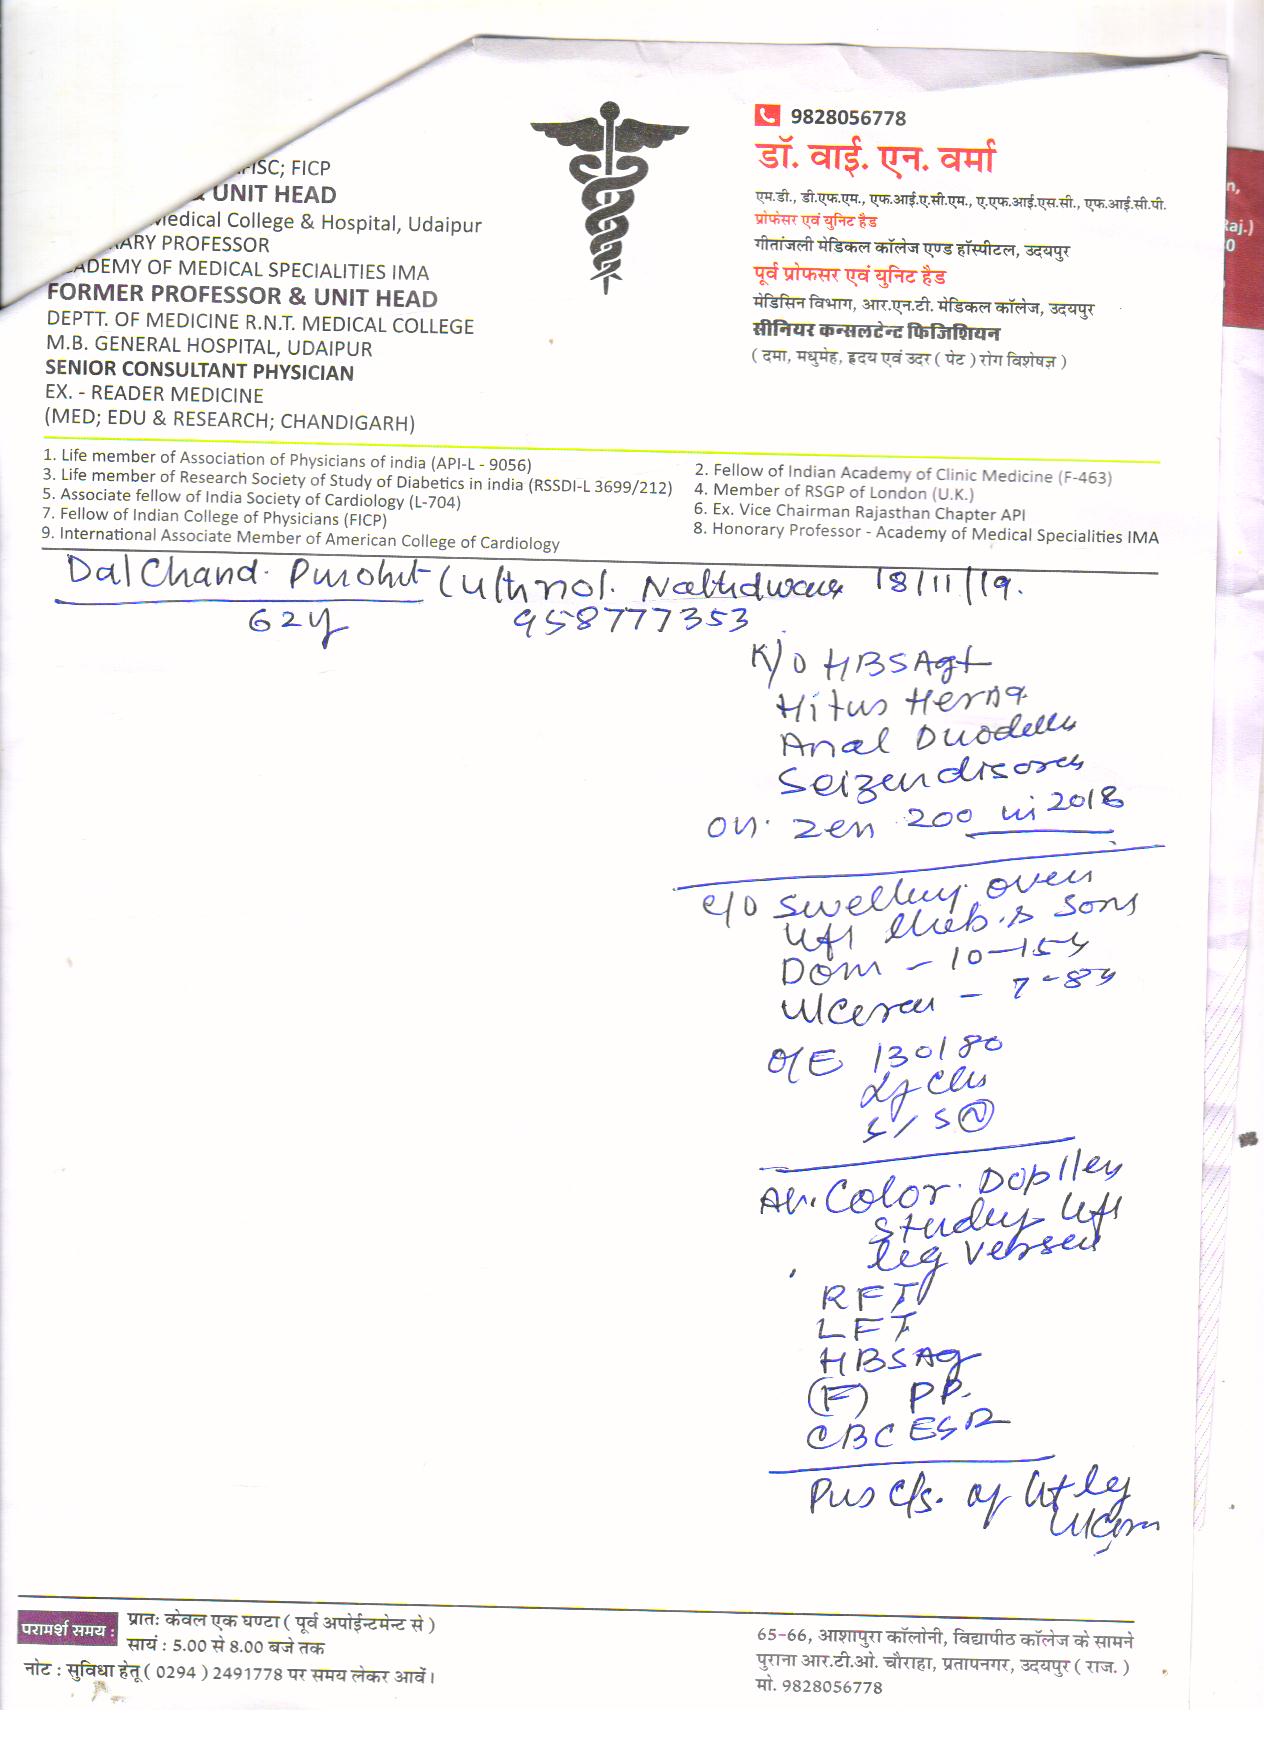 9828056778
डॉ. वाई. एन. वर्मा
एम.डी., डी.एफ.एम., एफ.आई.ए.सी.एम., ए.एफ.आई.एस.सी., एफ.आई.सी.पी.
प्रोफेसर एवं युनिट हैड
गीतांजली मेडिकल कॉलेज एण्ड हॉस्पीटल, उदयपुर
पूर्व प्रोफसर एवं युनिट हैड
मेडिसिन विभाग, आर.एन.टी. मेडिकल कॉलेज, उदयपुर
सीनियर कन्सलटेन्ट फिजिशियन
( दमा, मधुमेह, हृदय एवं उदर ( पेट ) रोग विशेषज्ञ )
FISC; FICP
& UNIT HEAD
Medical College & Hospital, Udaipur
RARY PROFESSOR
ACADEMY OF MEDICAL SPECIALITIES IMA
FORMER PROFESSOR & UNIT HEAD
DEPTT. OF MEDICINE R.N.T. MEDICAL COLLEGE
M.B. GENERAL HOSPITAL, UDAIPUR
SENIOR CONSULTANT PHYSICIAN
EX. - READER MEDICINE
(MED; EDU & RESEARCH; CHANDIGARH)
1. Life member of Association of Physicians of india (API-L - 9056)
2. Fellow of Indian Academy of Clinic Medicine (F-463)
3. Life member of Research Society of Study of Diabetics in india (RSSDI-L 3699/212)
4. Member of RSGP of London (U.K.)
5. Associate fellow of India Society of Cardiology (L-704)
6. Ex. Vice Chairman Rajasthan Chapter API
7. Fellow of Indian College of Physicians (FICP)
8. Honorary Professor - Academy of Medical Specialities IMA
9. International Associate Member of American College of Cardiology
Dal Chand. Purohit 18/11/19.
62y 958777353
K/O HBSAg+
Hitus Herna
on. zen 200 in 2018
c/o Swelling over
left
Dom - 10-15y
Ulcerau - 7-8y
O/E 130/80
S/S N
Av. Color. Doppler
Study left
leg
RFT
LFT
HBSAg
(F) PP.
CBC ESR
Pus C/s. of left leg
परामर्श समय :
प्रातः केवल एक घण्टा ( पूर्व अपोईन्टमेन्ट से )
सायं : 5.00 से 8.00 बजे तक
नोट : सुविधा हेतू ( 0294 ) 2491778 पर समय लेकर आवें।
65-66, आशापुरा कॉलोनी, विद्यापीठ कॉलेज के सामने
पुराना आर.टी.ओ. चौराहा, प्रतापनगर, उदयपुर ( राज. )
मो. 9828056778